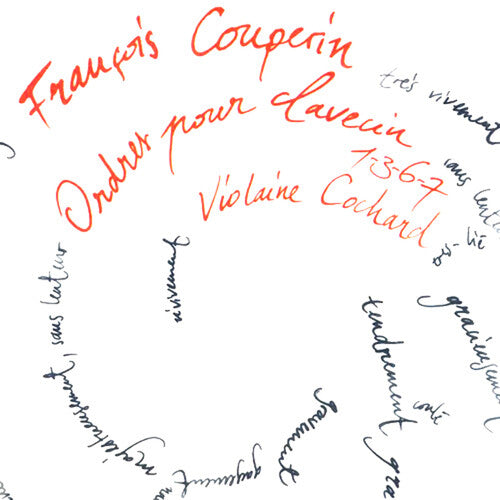 François Couperin
Ordres pour clavecin
1-3-6-7
Violaine Cochard
très vivement
sans lenteur
lié
gracieusement
tendrement
coulé
gra
gaiement
gayement
majestueusement
sans lenteur
vivement